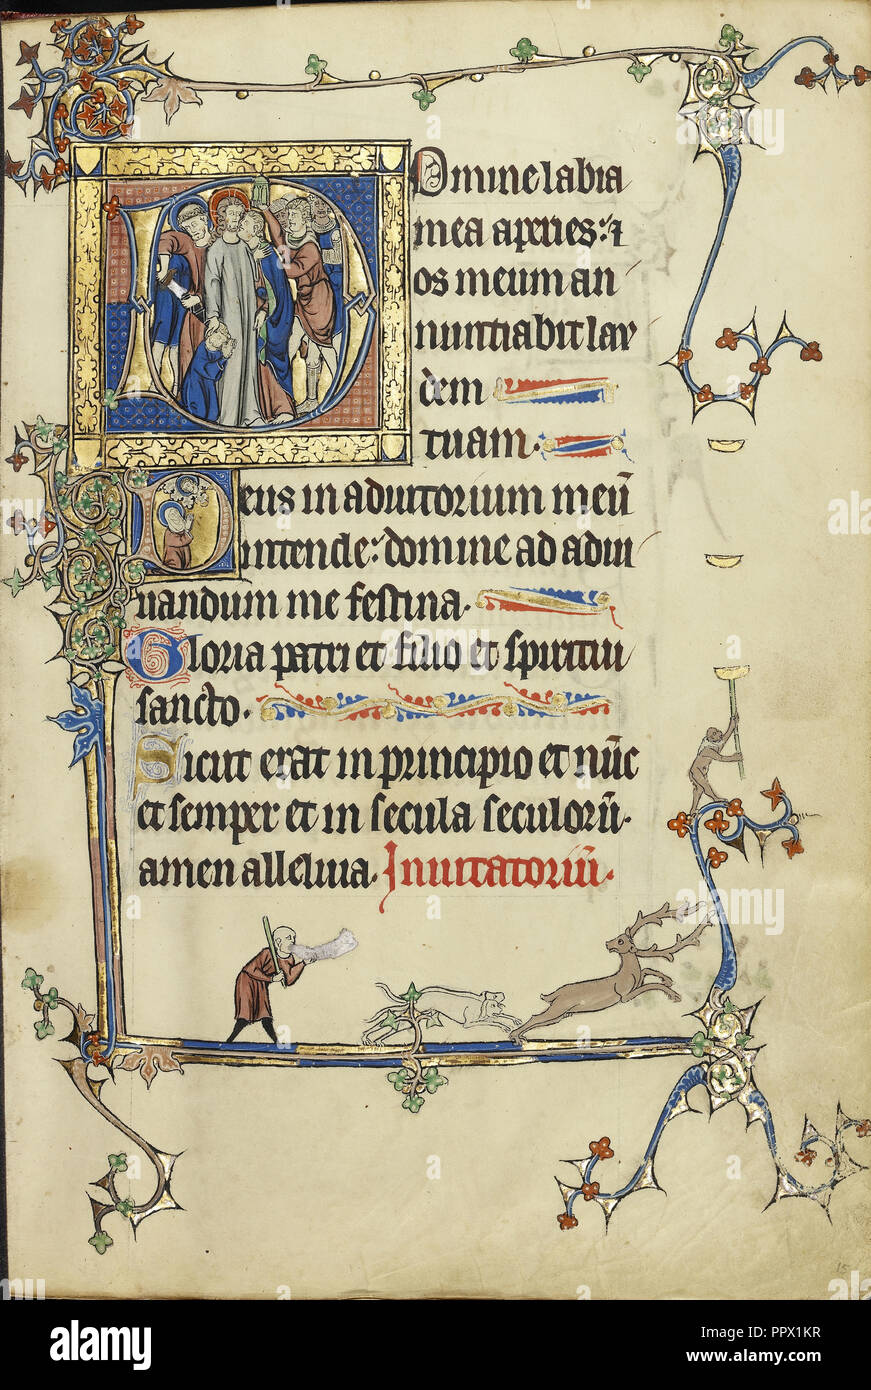 Domine labia
mea aperies: ⁊
os meum an
nuntiabit lau
dem
tuam.
Deus in adiutorium meū
intende: domine ad adiu
uandum me festina.
Gloria patri et filio et spiritui
sancto.
Sicut erat in principio et nūc
et semper et in secula seculorū.
amen alleluia. Inuitatoriū.
15
alamy
Image ID: PPX1KR
www.alamy.com